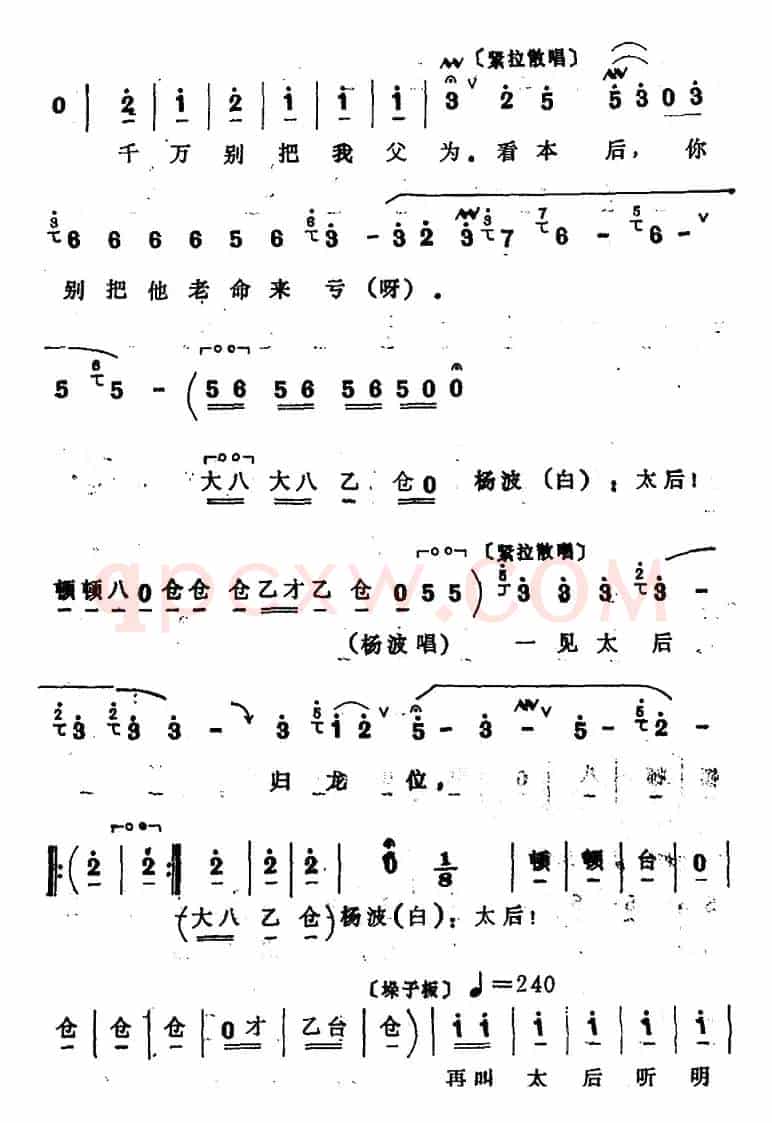 〔紧拉散唱〕
0 | 2 | i | 2 | i | i | i | 3 2 5 5 3 0 3
千 万 别 把 我 父 为。看 本 后，你
6 6 6 6 5 6 3 - 3 2 3 7 6 - 6 -
别 把 他 老 命 来 亏（呀）。
5 5 - （56 56 56 50 0
大八 大八 乙 仓0 杨波（白）：太后！
〔紧拉散唱〕
顿顿八0仓仓 仓乙才乙 仓 0 5 5） 3 3 3 3 -
（杨波唱） 一 见 太 后
3 3 3 - 3 i 2 5 - 3 - 5 - 2 -
归 龙 位，
‖:（2 | 2 :‖ 2 | 2 | 2 | 0 1/8 | 顿 | 顿 | 台 | 0
（大八 乙 仓）杨波（白）：太后！
〔垛子板〕 ♩=240
仓 | 仓 | 仓 | 0才 | 乙台 | 仓） | i i | i | i | i | i
再叫 太 后 听 明
qpcxw.com